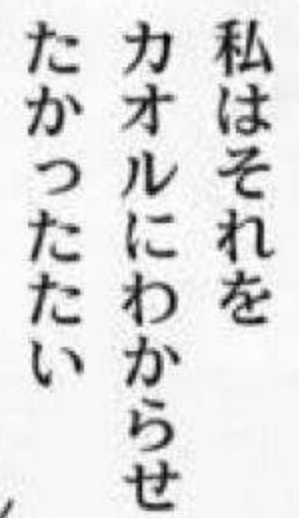 私はそれを
カオルにわからせ
たかったたい